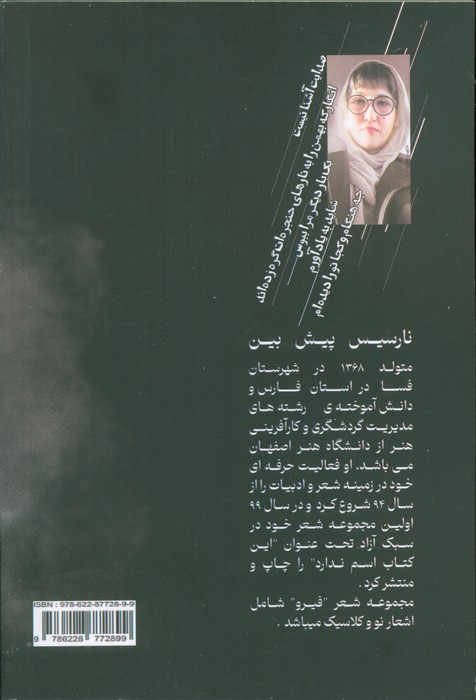 صدایت آشنا نیست
انگار که بهمن را به تارهای حنجره‌ات گره زده‌اند
یک بار دیگر مرا ببوس
شاید به یاد آورم
چه هنگام و کجا تو را دیده‌ام
نارسیس پیش بین
متولد ۱۳۶۸ در شهرستان
فسا در استان فارس و
دانش آموخته ی رشته های
مدیریت گردشگری و کارآفرینی
هنر از دانشگاه هنر اصفهان
می باشد. او فعالیت حرفه ای
خود در زمینه شعر و ادبیات را از
سال ۹۴ شروع کرد و در سال ۹۹
اولین مجموعه شعر خود در
سبک آزاد تحت عنوان "این
کتاب اسم ندارد" را چاپ و
منتشر کرد.
مجموعه شعر "فیرو" شامل
اشعار نو و کلاسیک میباشد.
ISBN : 978-622-87728-9-9
9 786228 772899